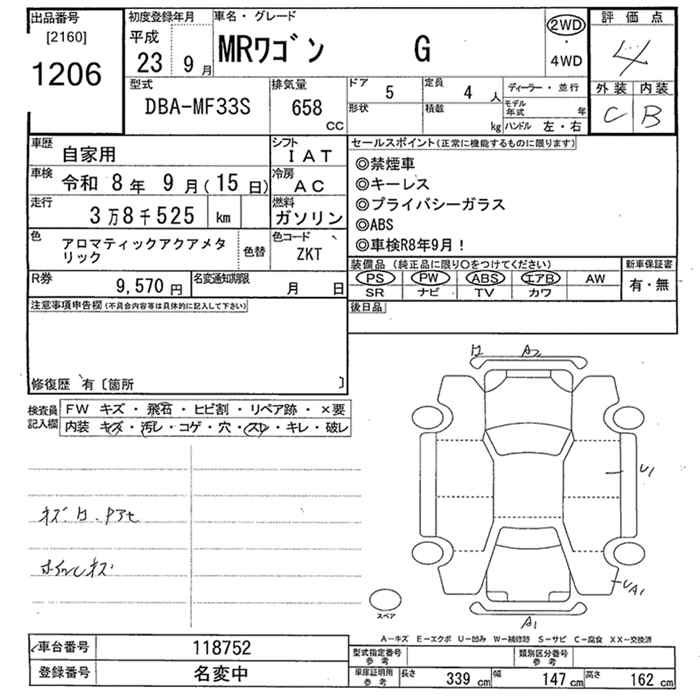 出品番号
[2160]
1206
初度登録年月
平成
23 9 月
車名・グレード
MRワゴン G
2WD
・
4WD
評価点
4
外装 内装
C B
型式
DBA-MF33S
排気量
658
CC
ドア 5
定員 4 人
形状
積載 kg
ディーラー・並行
モデル年式 年
ハンドル 左・右
車歴 自家用
シフト IAT
車検 令和 8 年 9 月 ( 15 日)
冷房 AC
走行 3 万 8 千 525 km
燃料 ガソリン
色 アロマティックアクアメタリック
色替
色コード ZKT
R券 9,570 円
名変通知期限 月 日
セールスポイント(正常に機能するものに限ります)
◎禁煙車
◎キーレス
◎プライバシーガラス
◎ABS
◎車検R8年9月!
装備品 (純正品に限り〇をつけてください)
新車保証書
PS PW ABS エアB AW
SR ナビ TV カワ
有・無
後日品
注意事項申告欄(不具合内容等は具体的に記入して下さい)
修復歴 有〔箇所 〕
検査員記入欄
FW キズ・飛石・ヒビ割・リペア跡・×要
内装 キズ・汚レ・コゲ・穴・スレ・キレ・破レ
A2
U1
UA1
A1
スペア
A-キズ E-エクボ U-凹み W-補修跡 S-サビ C-腐食 XX-交換済
車台番号 118752
登録番号 名変中
型式指定番号 参考
類別区分番号 参考
車庫証明用 参考
長さ 339 cm 幅 147 cm 高さ 162 cm